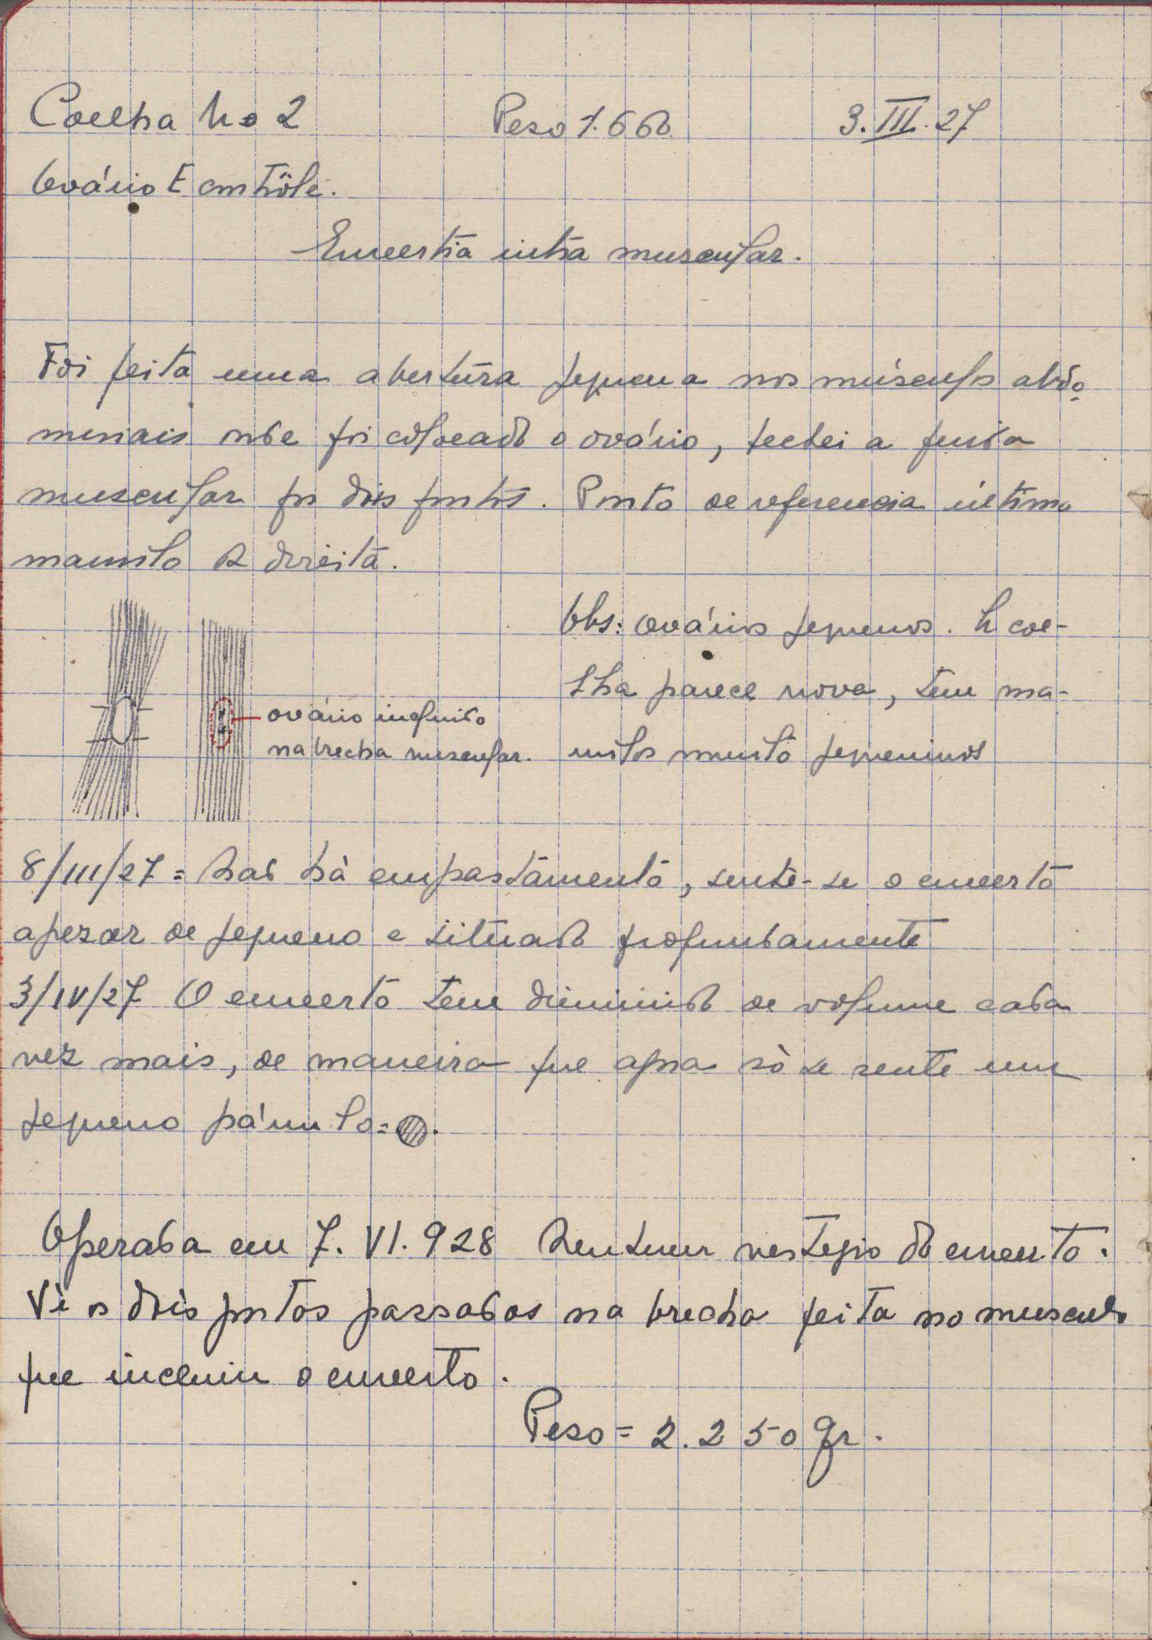 Coelha No 2 Peso 1.660 3.III.27
Ovário E contrôle.
Enxertia intra muscular.
Foi feita uma abertura pequena nos músculos abdo
minais onde foi colocado o ovário, fechei a fenda
muscular por dois pontos. Ponto de referencia último
mamilo D direita.
Obs: ovários pequenos. A coe-
lha parece nova, tem ma-
milos muito pequeninos
ovário incluido
na brecha muscular.
8/III/27 = Não há empastamento, sente-se o enxerto
apezar de pequeno e situado profundamente
3/IV/27 O enxerto tem diminuido de volume cada
vez mais, de maneira que agora só se sente um
pequeno pámulo =
Operada em 7.VI.928 Nenhum vestegio do enxerto.
Vi os dois pontos passados na brecha feita no musculo
que incluiu o enxerto.
Peso = 2.250 gr.